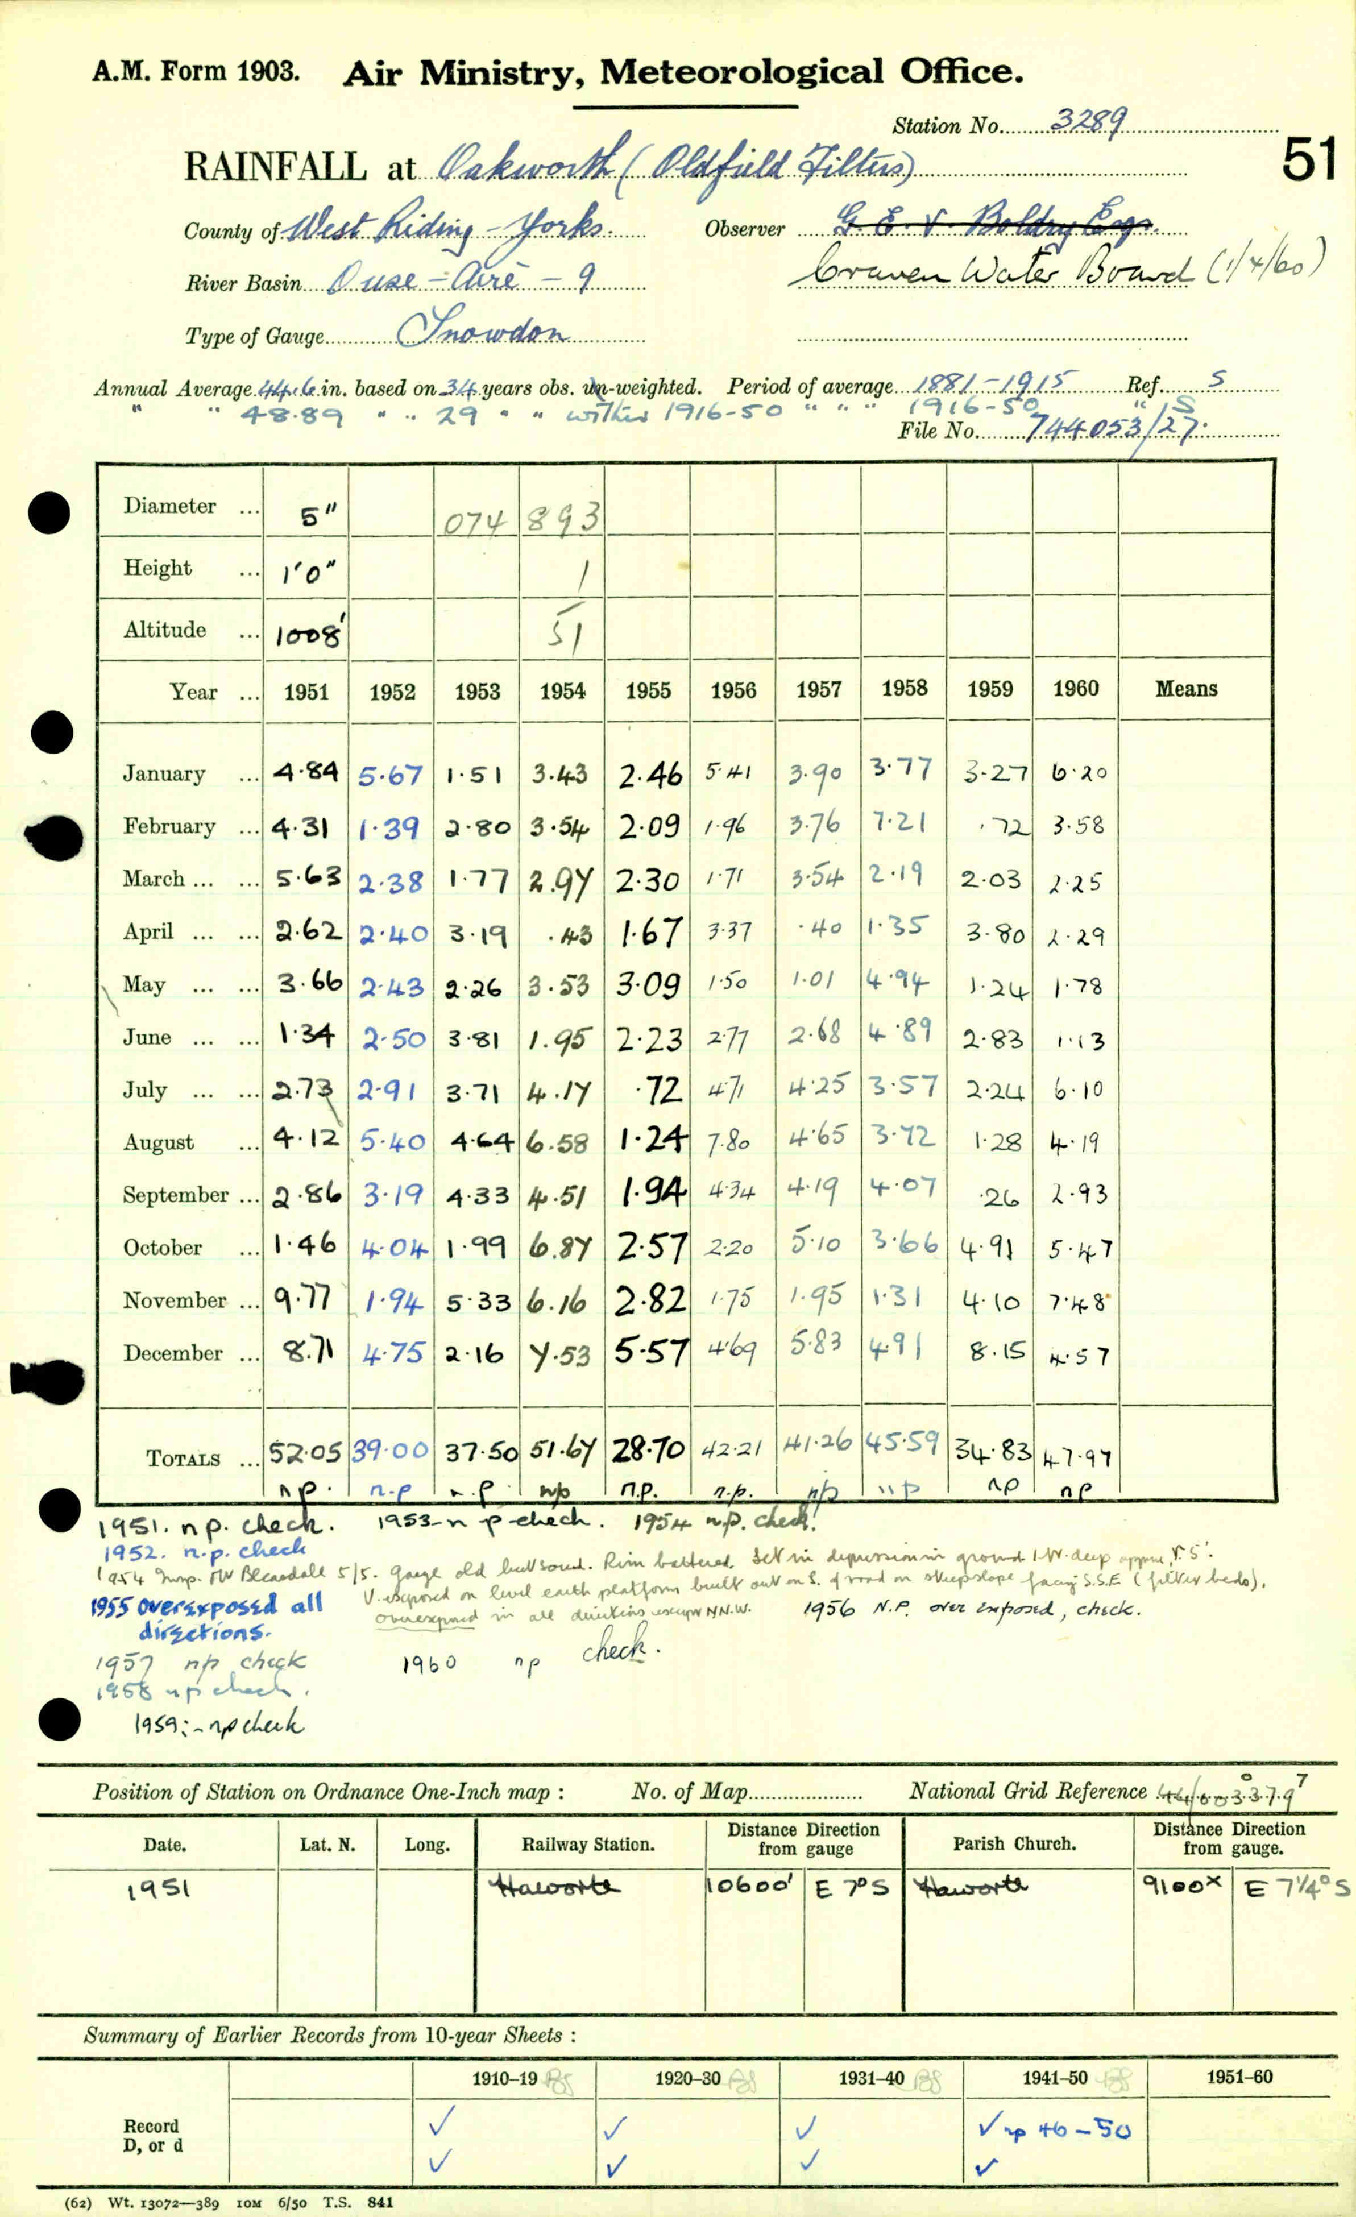 A.M. Form 1903. Air Ministry, Meteorological Office.
Station No. 3289
51
RAINFALL at Oakworth (Oldfield Filters)
County of West Riding - Yorks. Observer G. E. V. Boldry Esq.
River Basin Ouse - Aire - 9 Craven Water Board (1/4/60)
Type of Gauge Snowdon
Annual Average 44.6 in. based on 34 years obs. un-weighted. Period of average 1881-1915 Ref. S
" " 48.89 " " 29 " " within 1916-50 " " " 1916-50 " S
File No. 744053/27.
Diameter ... 5" 074 893
Height ... 1'0" 1
Altitude ... 1008' 51
Year ... 1951 1952 1953 1954 1955 1956 1957 1958 1959 1960 Means
January ... 4.84 5.67 1.51 3.43 2.46 5.41 3.90 3.77 3.27 6.20
February ... 4.31 1.39 2.80 3.54 2.09 1.96 3.76 7.21 .72 3.58
March ... ... 5.63 2.38 1.77 2.97 2.30 1.71 3.54 2.19 2.03 2.25
April ... ... 2.62 2.40 3.19 .43 1.67 3.37 .40 1.35 3.80 2.29
May ... ... 3.66 2.43 2.26 3.53 3.09 1.50 1.01 4.94 1.24 1.78
June ... ... 1.34 2.50 3.81 1.95 2.23 2.77 2.68 4.89 2.83 1.13
July ... ... 2.73 2.91 3.71 4.17 .72 4.71 4.25 3.57 2.24 6.10
August ... 4.12 5.40 4.64 6.58 1.24 7.80 4.65 3.72 1.28 4.19
September ... 2.86 3.19 4.33 4.51 1.94 4.34 4.19 4.07 .26 2.93
October ... 1.46 4.04 1.99 6.87 2.57 2.20 5.10 3.66 4.91 5.47
November ... 9.77 1.94 5.33 6.16 2.82 1.75 1.95 1.31 4.10 7.48
December ... 8.71 4.75 2.16 7.53 5.57 4.69 5.83 4.91 8.15 4.57
TOTALS ... 52.05 39.00 37.50 51.67 28.70 42.21 41.26 45.59 34.83 47.97
n.p. n.p n.p. np n.p. n.p. np np np np
1951. n p. check. 1953 - n p check. 1954 n.p. check.
1952. n.p. check
1954 Insp. JW Bleasdale 5/5. gauge old but sound. Rim battered. Set in depression in ground 1-in. deep approx.
V. exposed on level earth platform built out on S. of road on steep slope facing S.S.E (filter beds).
1955 overexposed all directions.
overexposed in all directions except NNW. 1956 N.P. over exposed, check.
1957 np check 1960 np check.
1958 np check.
1959:- np check
Position of Station on Ordnance One-Inch map : No. of Map National Grid Reference 44/003379
Date. Lat. N. Long. Railway Station. Distance Direction from gauge Parish Church. Distance Direction from gauge.
1951 Haworth 10600' E 7° S Haworth 9100x E 7¼° S
Summary of Earlier Records from 10-year Sheets :
1910-19 1920-30 1931-40 1941-50 1951-60
Record ✓ ✓ ✓ ✓ np 46-50
D, or d ✓ ✓ ✓ ✓
(62) Wt. 13072—389 10M 6/50 T.S. 841